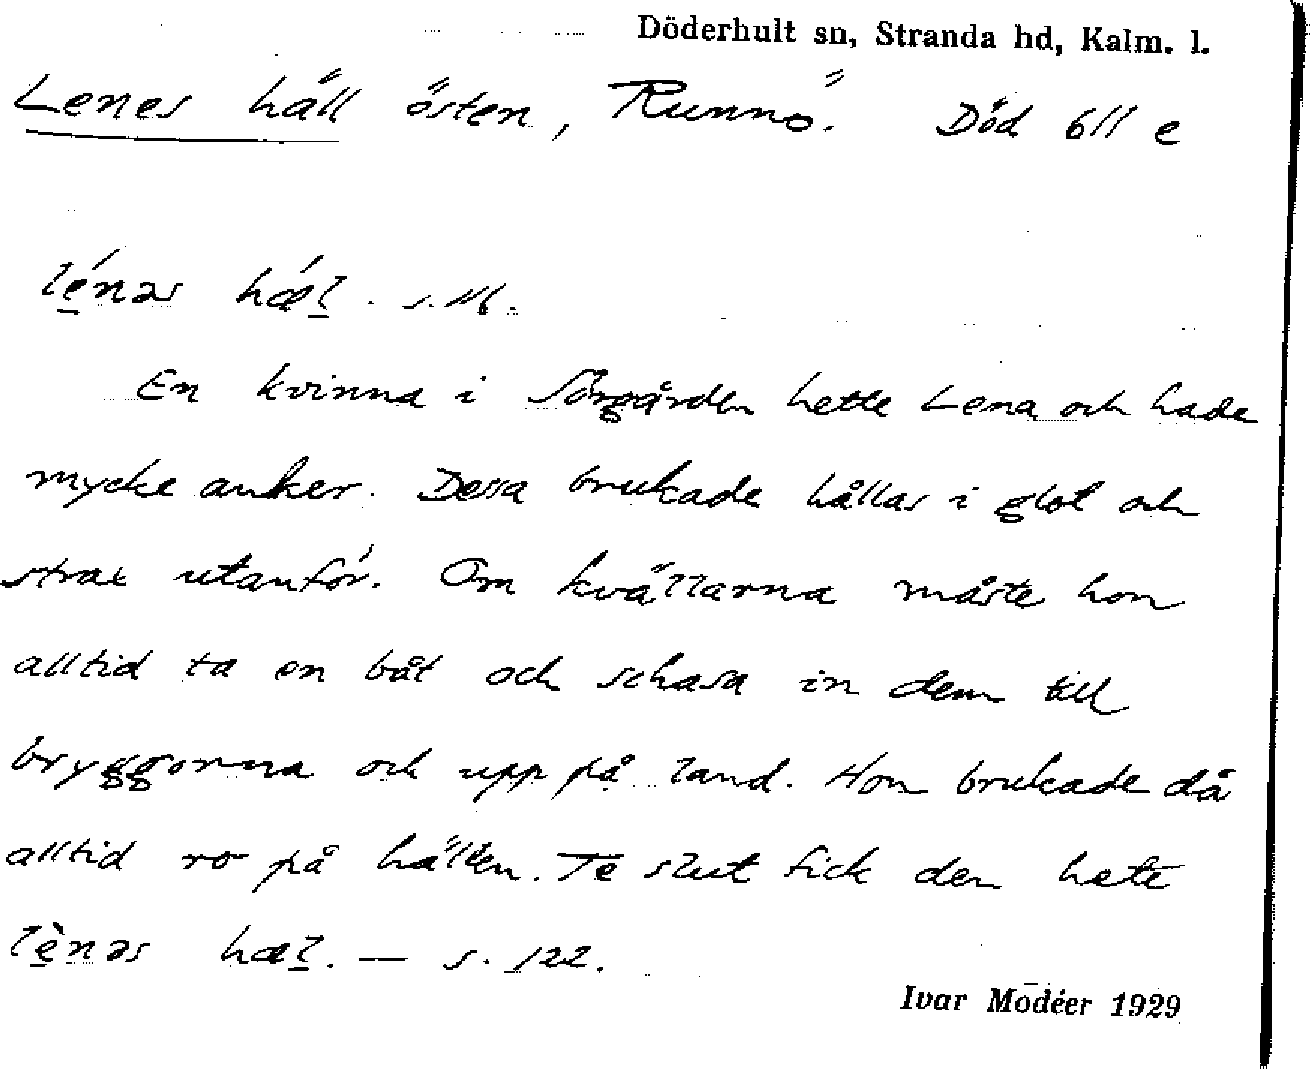 Döderhult sn, Stranda hd, Kalm. l.
Lenes häll östen, Runnö. Död 611 e
lénəs hǽl. s. 116.
En kvinna i Sörgården hette Lena och hade
mycke anker. Dessa brukade hållas i glot och
strax utanför. Om kvällarna måste hon
alltid ta en båt och schasa in dem till
bryggorna och upp på land. Hon brukade då
alltid ro på hällen. Te slut fick den hete
lènəs hæl. — s. 122.
Ivar Modéer 1929